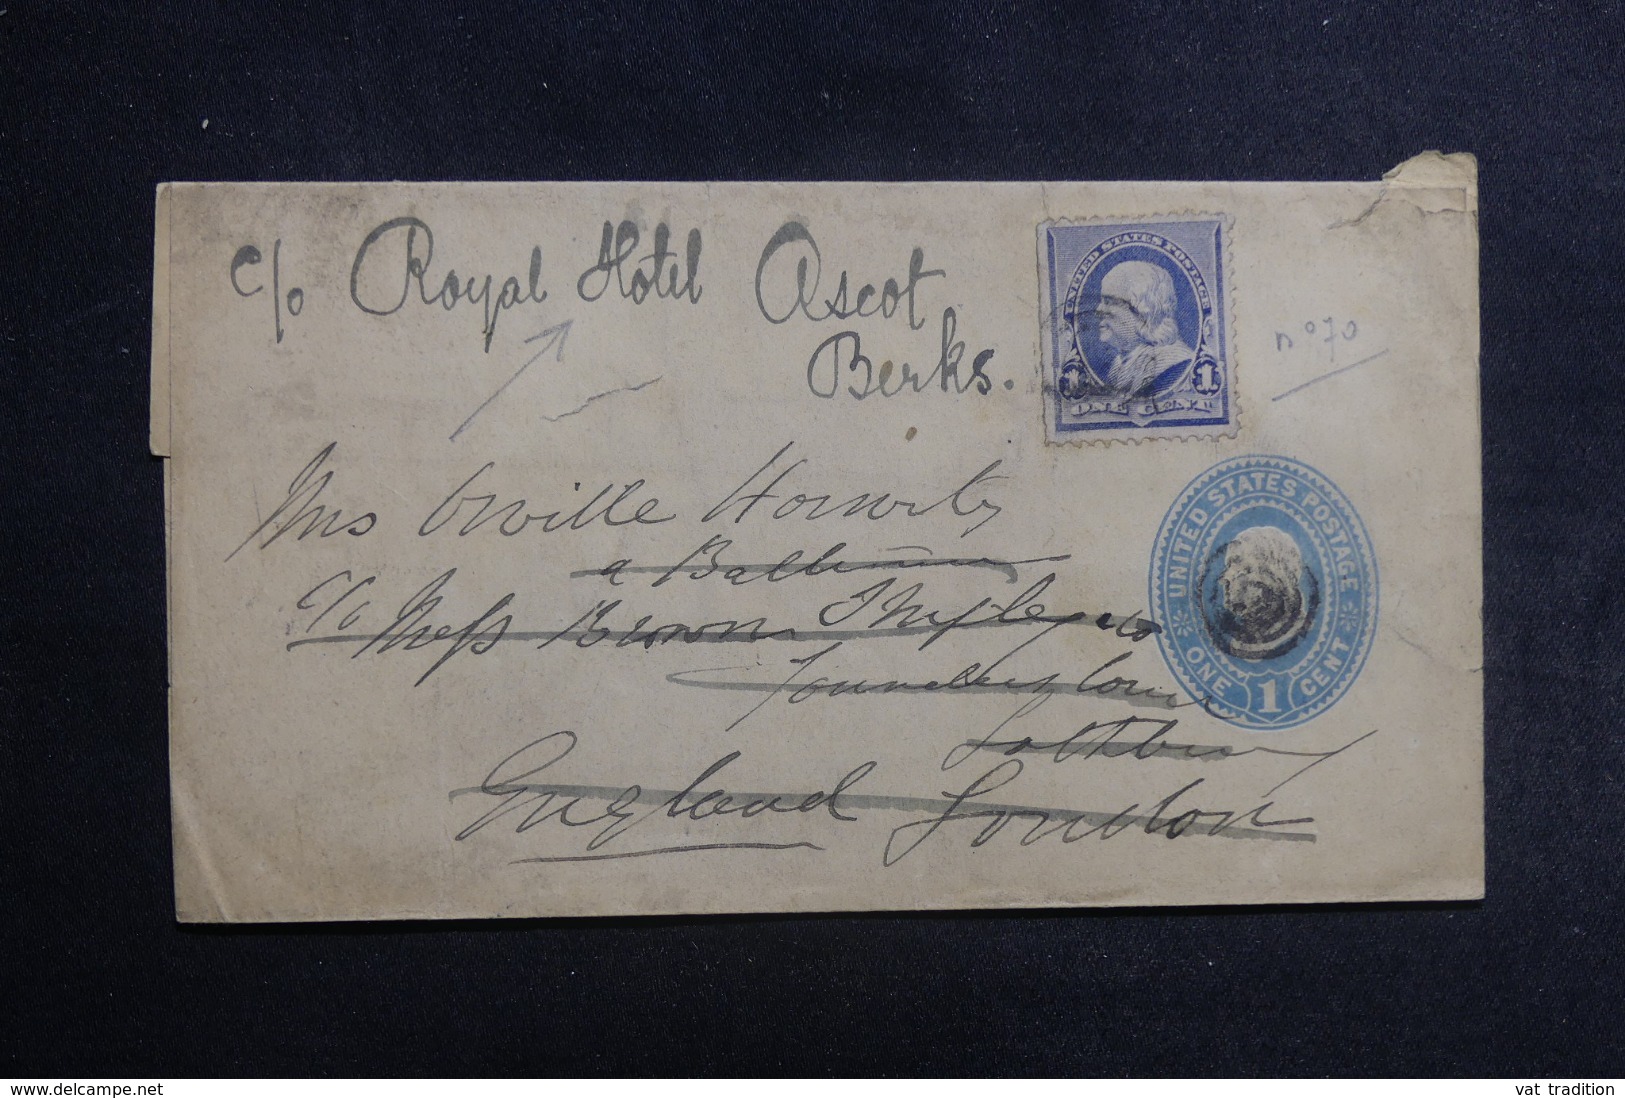 c/o Royal Hotel Ascot
Berks.
UNITED STATES POSTAGE
1 1
ONE CENT
n° 70
Mrs Orville Horwitz
a Baltimore
c/o Mess Brown Shipley & Co
Founders Court
Lothbury
England London
UNITED STATES POSTAGE
ONE 1 CENT
www.delcampe.net
vat tradition